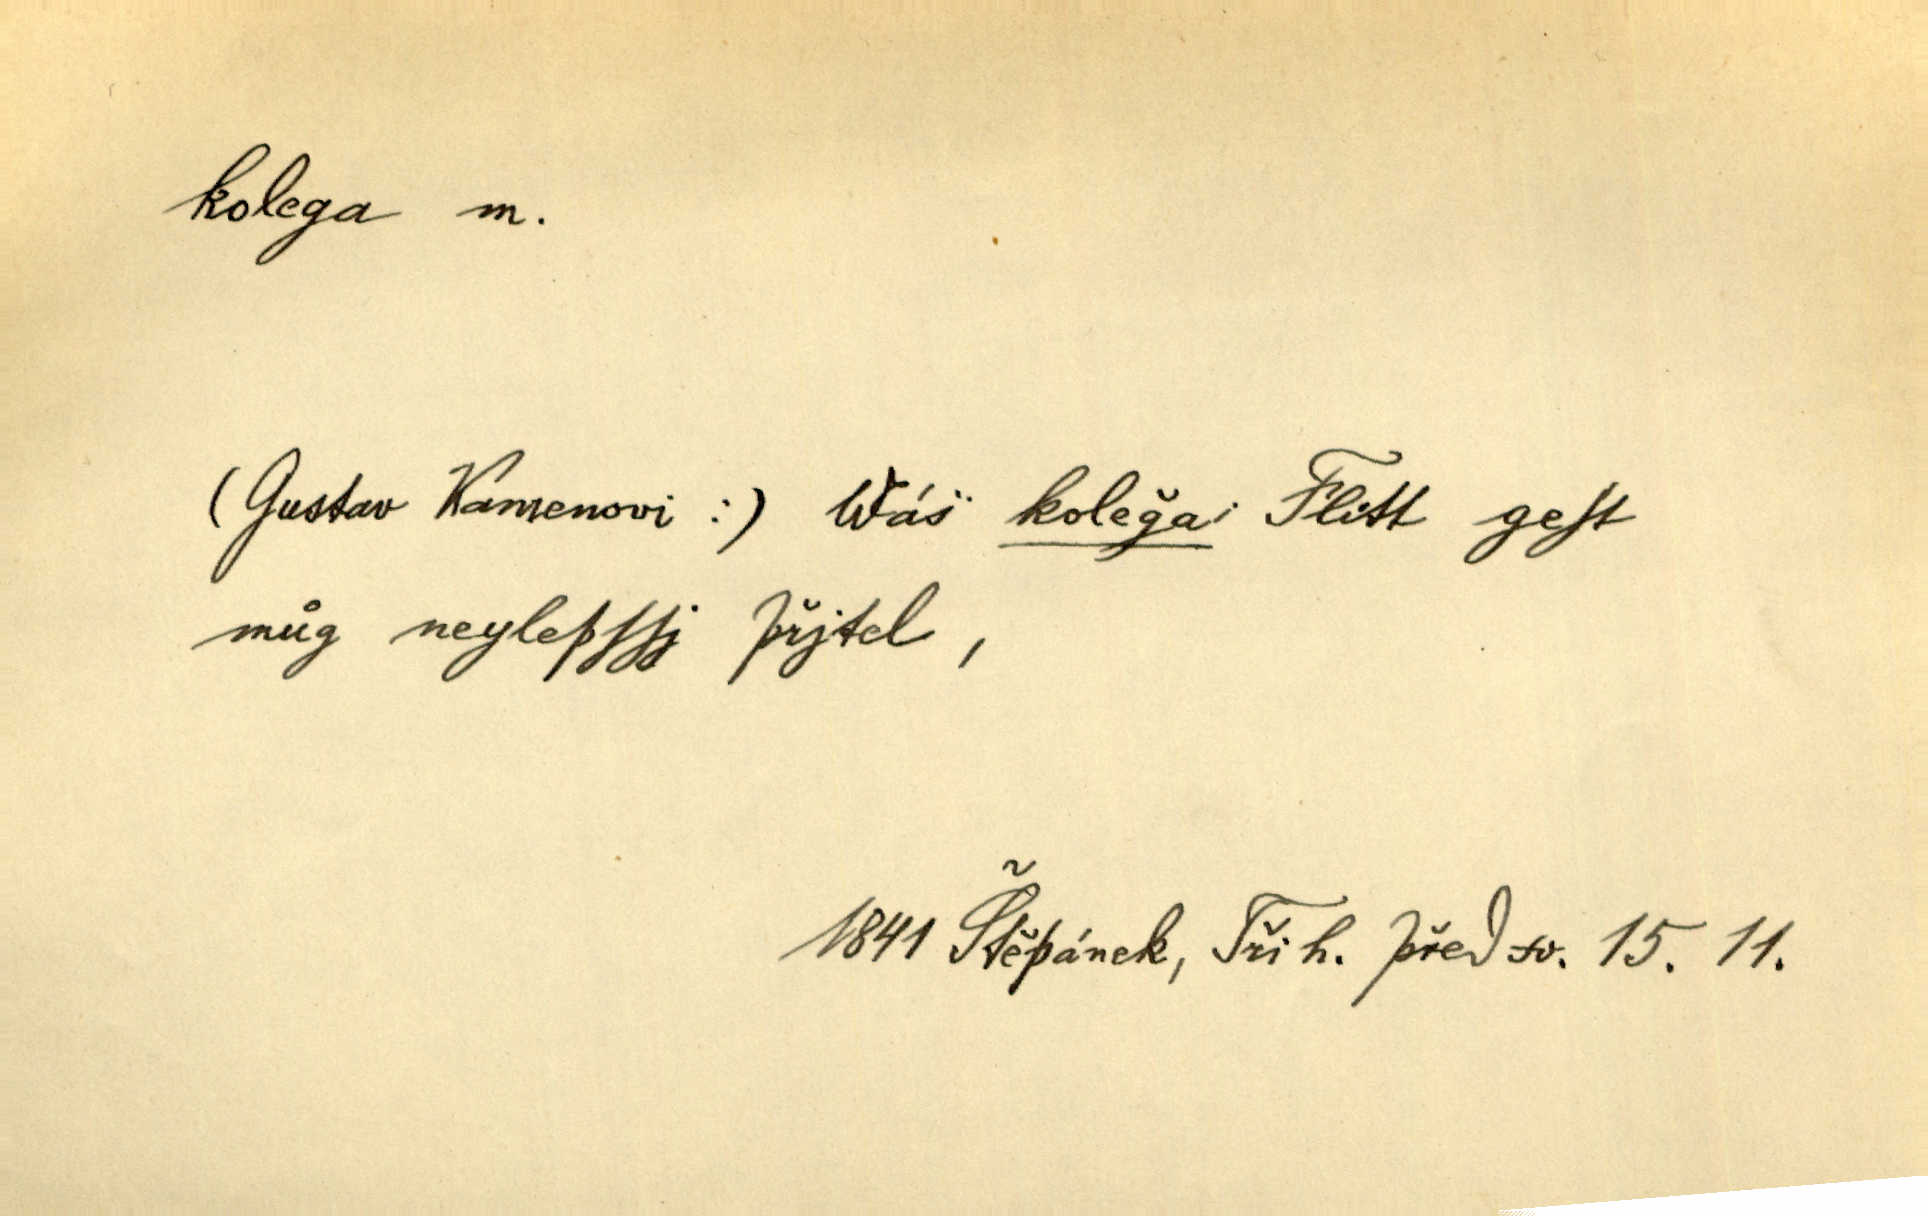 kolega m.
(Gustav Kamenovi:) Wáš koleǧa Flitt geſt
můg neylepſſj přjtel,
1841 Štěpánek, Tři h. před sv. 15. 11.